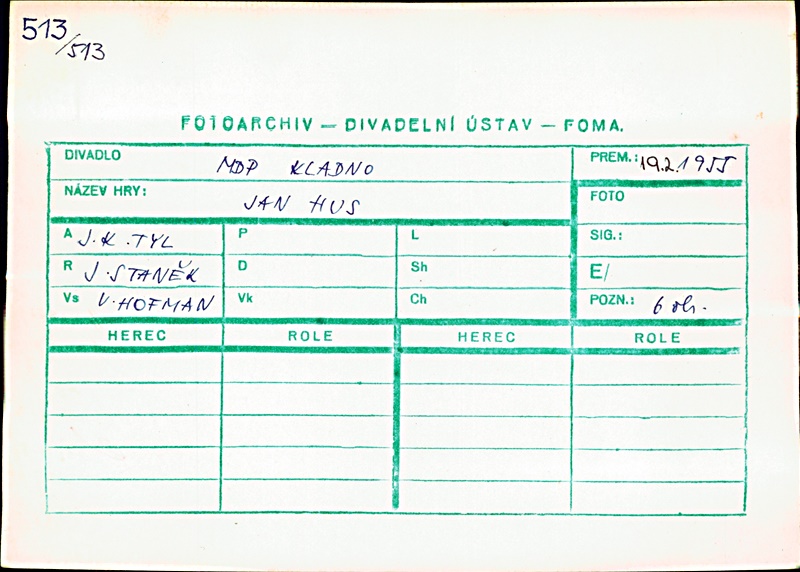 513
/513
FOTOARCHIV — DIVADELNÍ ÚSTAV — FOMA.
DIVADLO MDP KLADNO
PREM.: 19.2.1955
NÁZEV HRY: JAN HUS
FOTO
A J.K.TYL P L SIG.:
R J.STANĚK D Sh E/
Vs V.HOFMAN Vk Ch POZN.: 6 obr.
HEREC ROLE HEREC ROLE